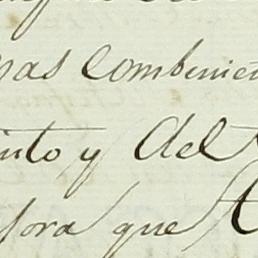 mas combenien
nto y del
sora que